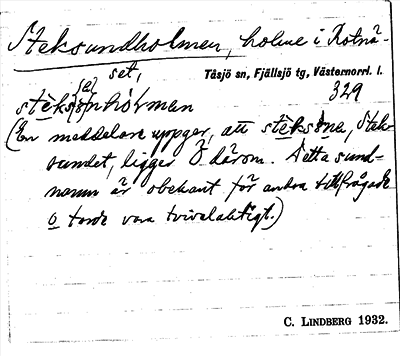 Steksundholmen, holme i Rotnä-
set,
Tåsjö sn, Fjällsjö tg, Västernorrl. l.
329
(En meddelare uppger, att Stek-
sundet, ligger Ö därom. Detta sund-
namn är obekant för andra tillfrågade
o torde vara tvivelaktigt.)
C. LINDBERG 1932.